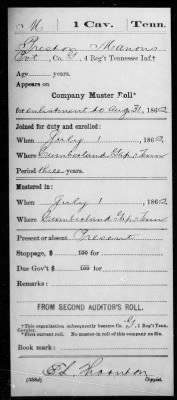 M | 1 Cav. | Tenn.
Preston Manons
Pvt, Co. G, 4 Reg't Tennessee Inf.†
Age years.
Appears on
Company Muster Roll*
for enlistment to Aug 31, 1862
Joined for duty and enrolled:
When July 1, 1862
Where Cumberland Gap, Tenn
Period three years.
Mustered in:
When July 1, 1862
Where Cumberland Gap, Tenn
Present or absent Present
Stoppage, $ 100 for
Due Gov't $ 100 for
Remarks:
FROM SECOND AUDITOR'S ROLL.
†This organization subsequently became Co. G, 1 Reg't Tenn.
Cavalry. *No muster-in roll of this company on file.
Book mark:
E L Thornton
(358d) Copyist.